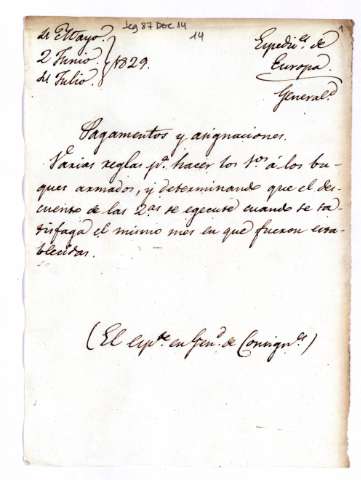 Leg 87 Doc 14
14
1
de Mayo
2 Junio
de Julio
1829.
Expedic.s de
Europa
General.s
Pagamentos y asignaciones.
Varias reglas p.a hacer los 1.os á los bu-
ques armados, y determinando que el des-
cuento de las 2.as se egecute cuando se sa-
tisfaga el mismo mes en que fueron esta-
blecidas.
(El esp.te en Gen.l de Consign.es)